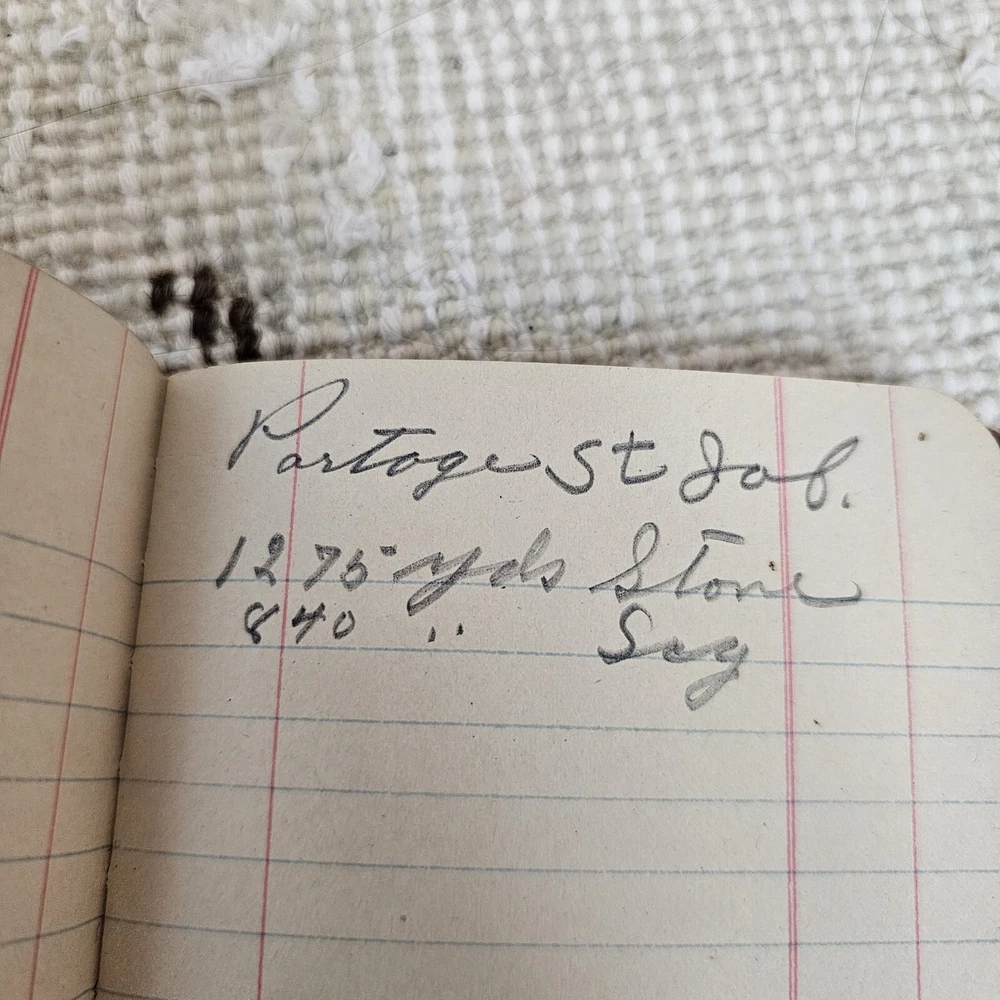 Portage St Job.
1275 yds Stone
840 " Scg